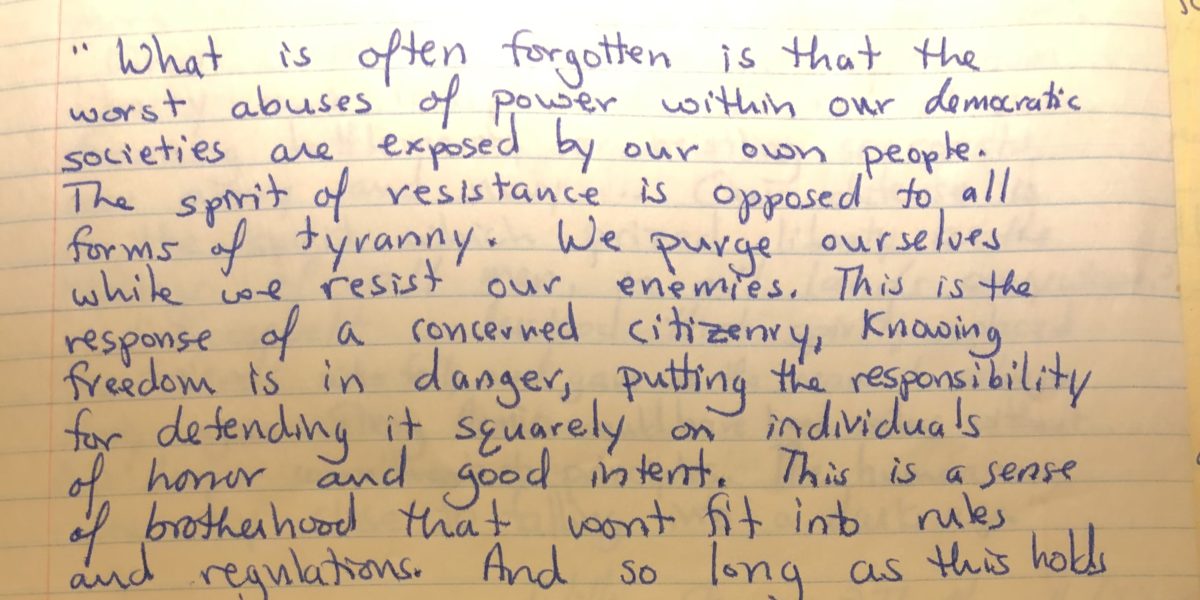 "What is often forgotten is that the
worst abuses of power within our democratic
societies are exposed by our own people.
The spirit of resistance is opposed to all
forms of tyranny. We purge ourselves
while we resist our enemies. This is the
response of a concerned citizenry, Knowing
freedom is in danger, putting the responsibility
for defending it squarely on individuals
of honor and good intent. This is a sense
of brotherhood that wont fit into rules
and regulations. And so long as this holds